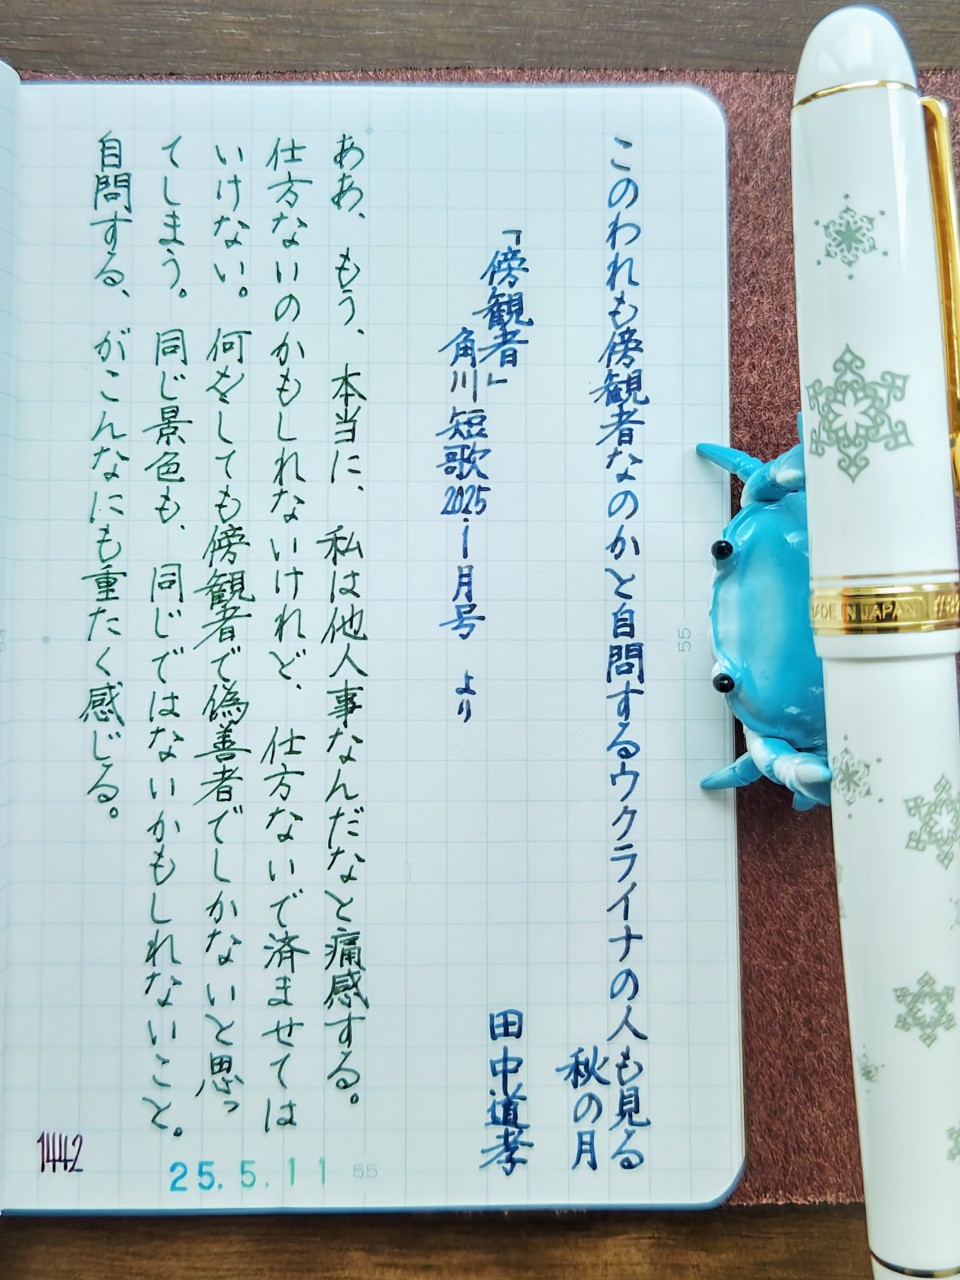 このわれも傍観者なのかと自問するウクライナの人も見る
秋の月
「傍観者」
田中道孝
角川短歌2025.1月号 より
ああ、もう、本当に、私は他人事なんだなと痛感する。
仕方ないのかもしれないけれど、仕方ないで済ませては
いけない。何をしても傍観者で偽善者でしかないと思っ
てしまう。同じ景色も、同じではないかもしれないこと。
自問する、がこんなにも重たく感じる。
25.5.11
55
1442
55
MADE IN JAPAN